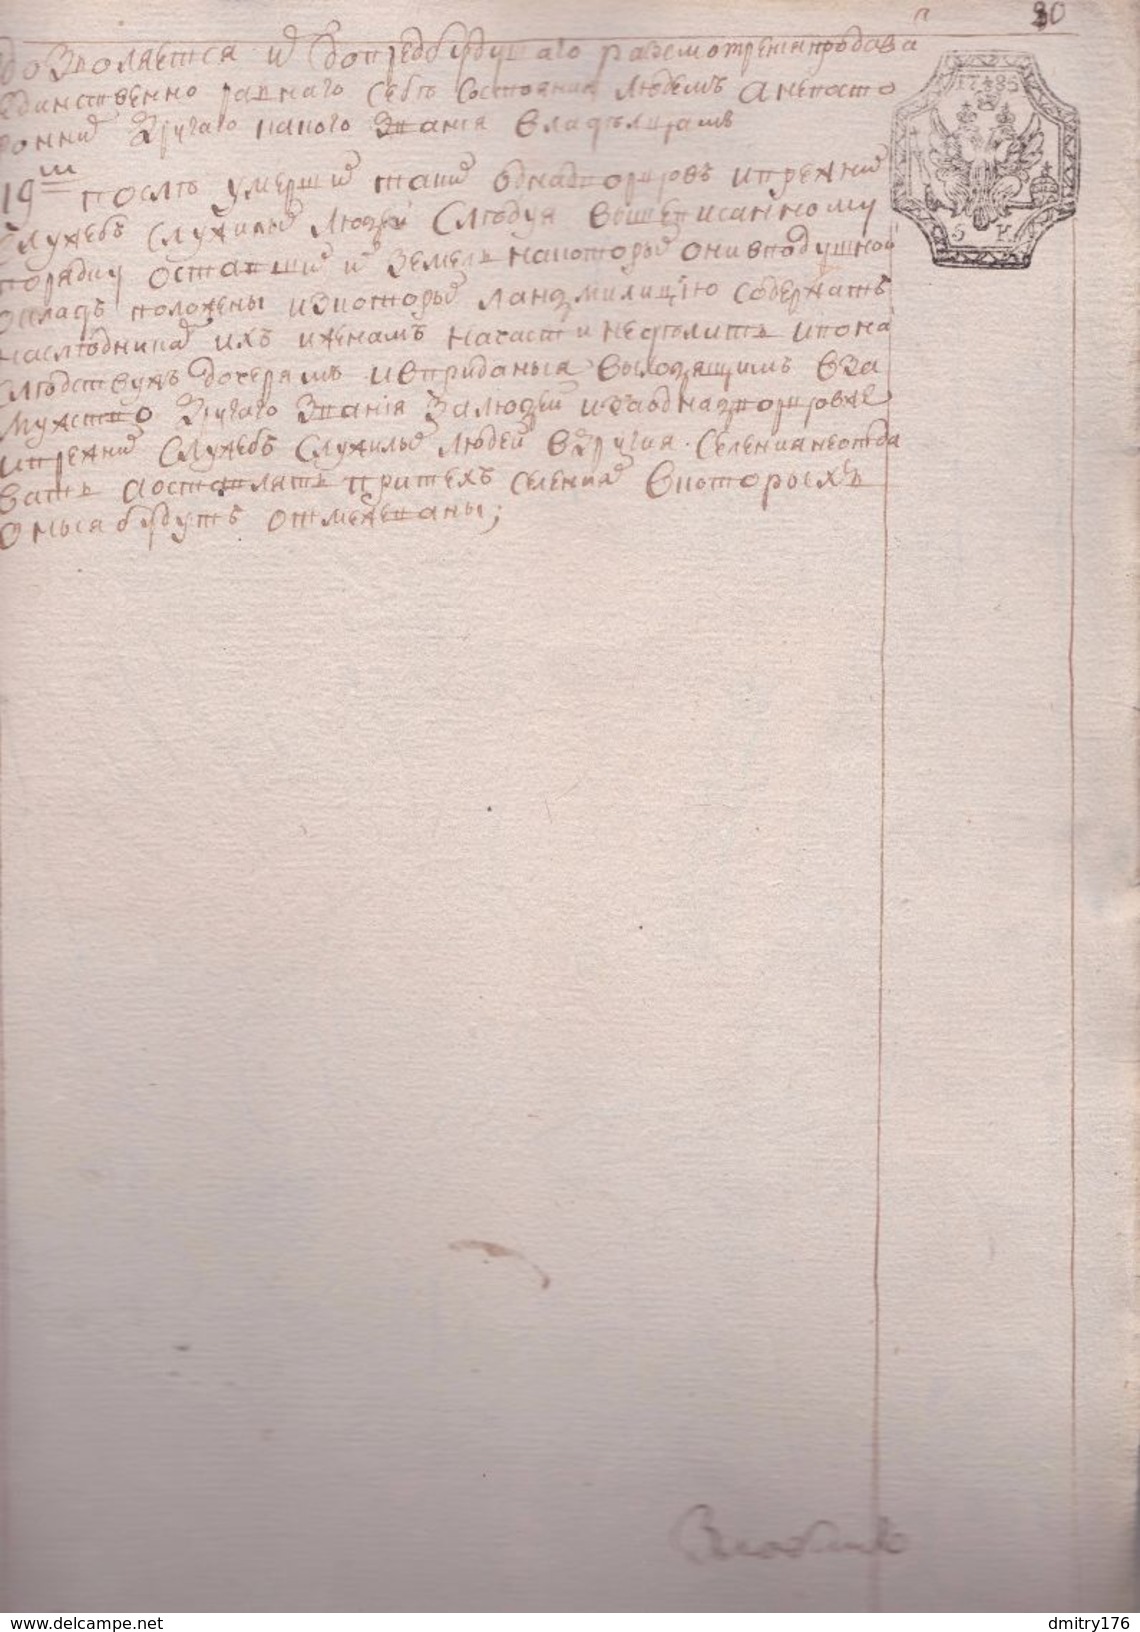 80
дозволяется и допредбудущаго разсмотрения продава
единственно равнаго себѣ состояния людемъ а непосто
ронни другаго какого звания владѣлцамъ
1748
19ш послѣ умерши таки однадворцовъ ипрежни
служебъ служилы людей следуя вышеписанному
порядку оставши и земель накоторы они вподушной
окладъ положены искоторы ландмилицiю содержатъ
наслѣднина ихъ иженамъ начасти неделить ипона
слѣдствухъ дочерямъ ивприданыя выходящимъ вза
мужство другаго званiя залюдей изаоднадворцовже
ипрежни служебъ служилы людей вдругия селения неотда
вать аоставлять притехъ селения вкоторыхъ
оныя будутъ отмежеваны;
www.delcampe.net
dmitry176